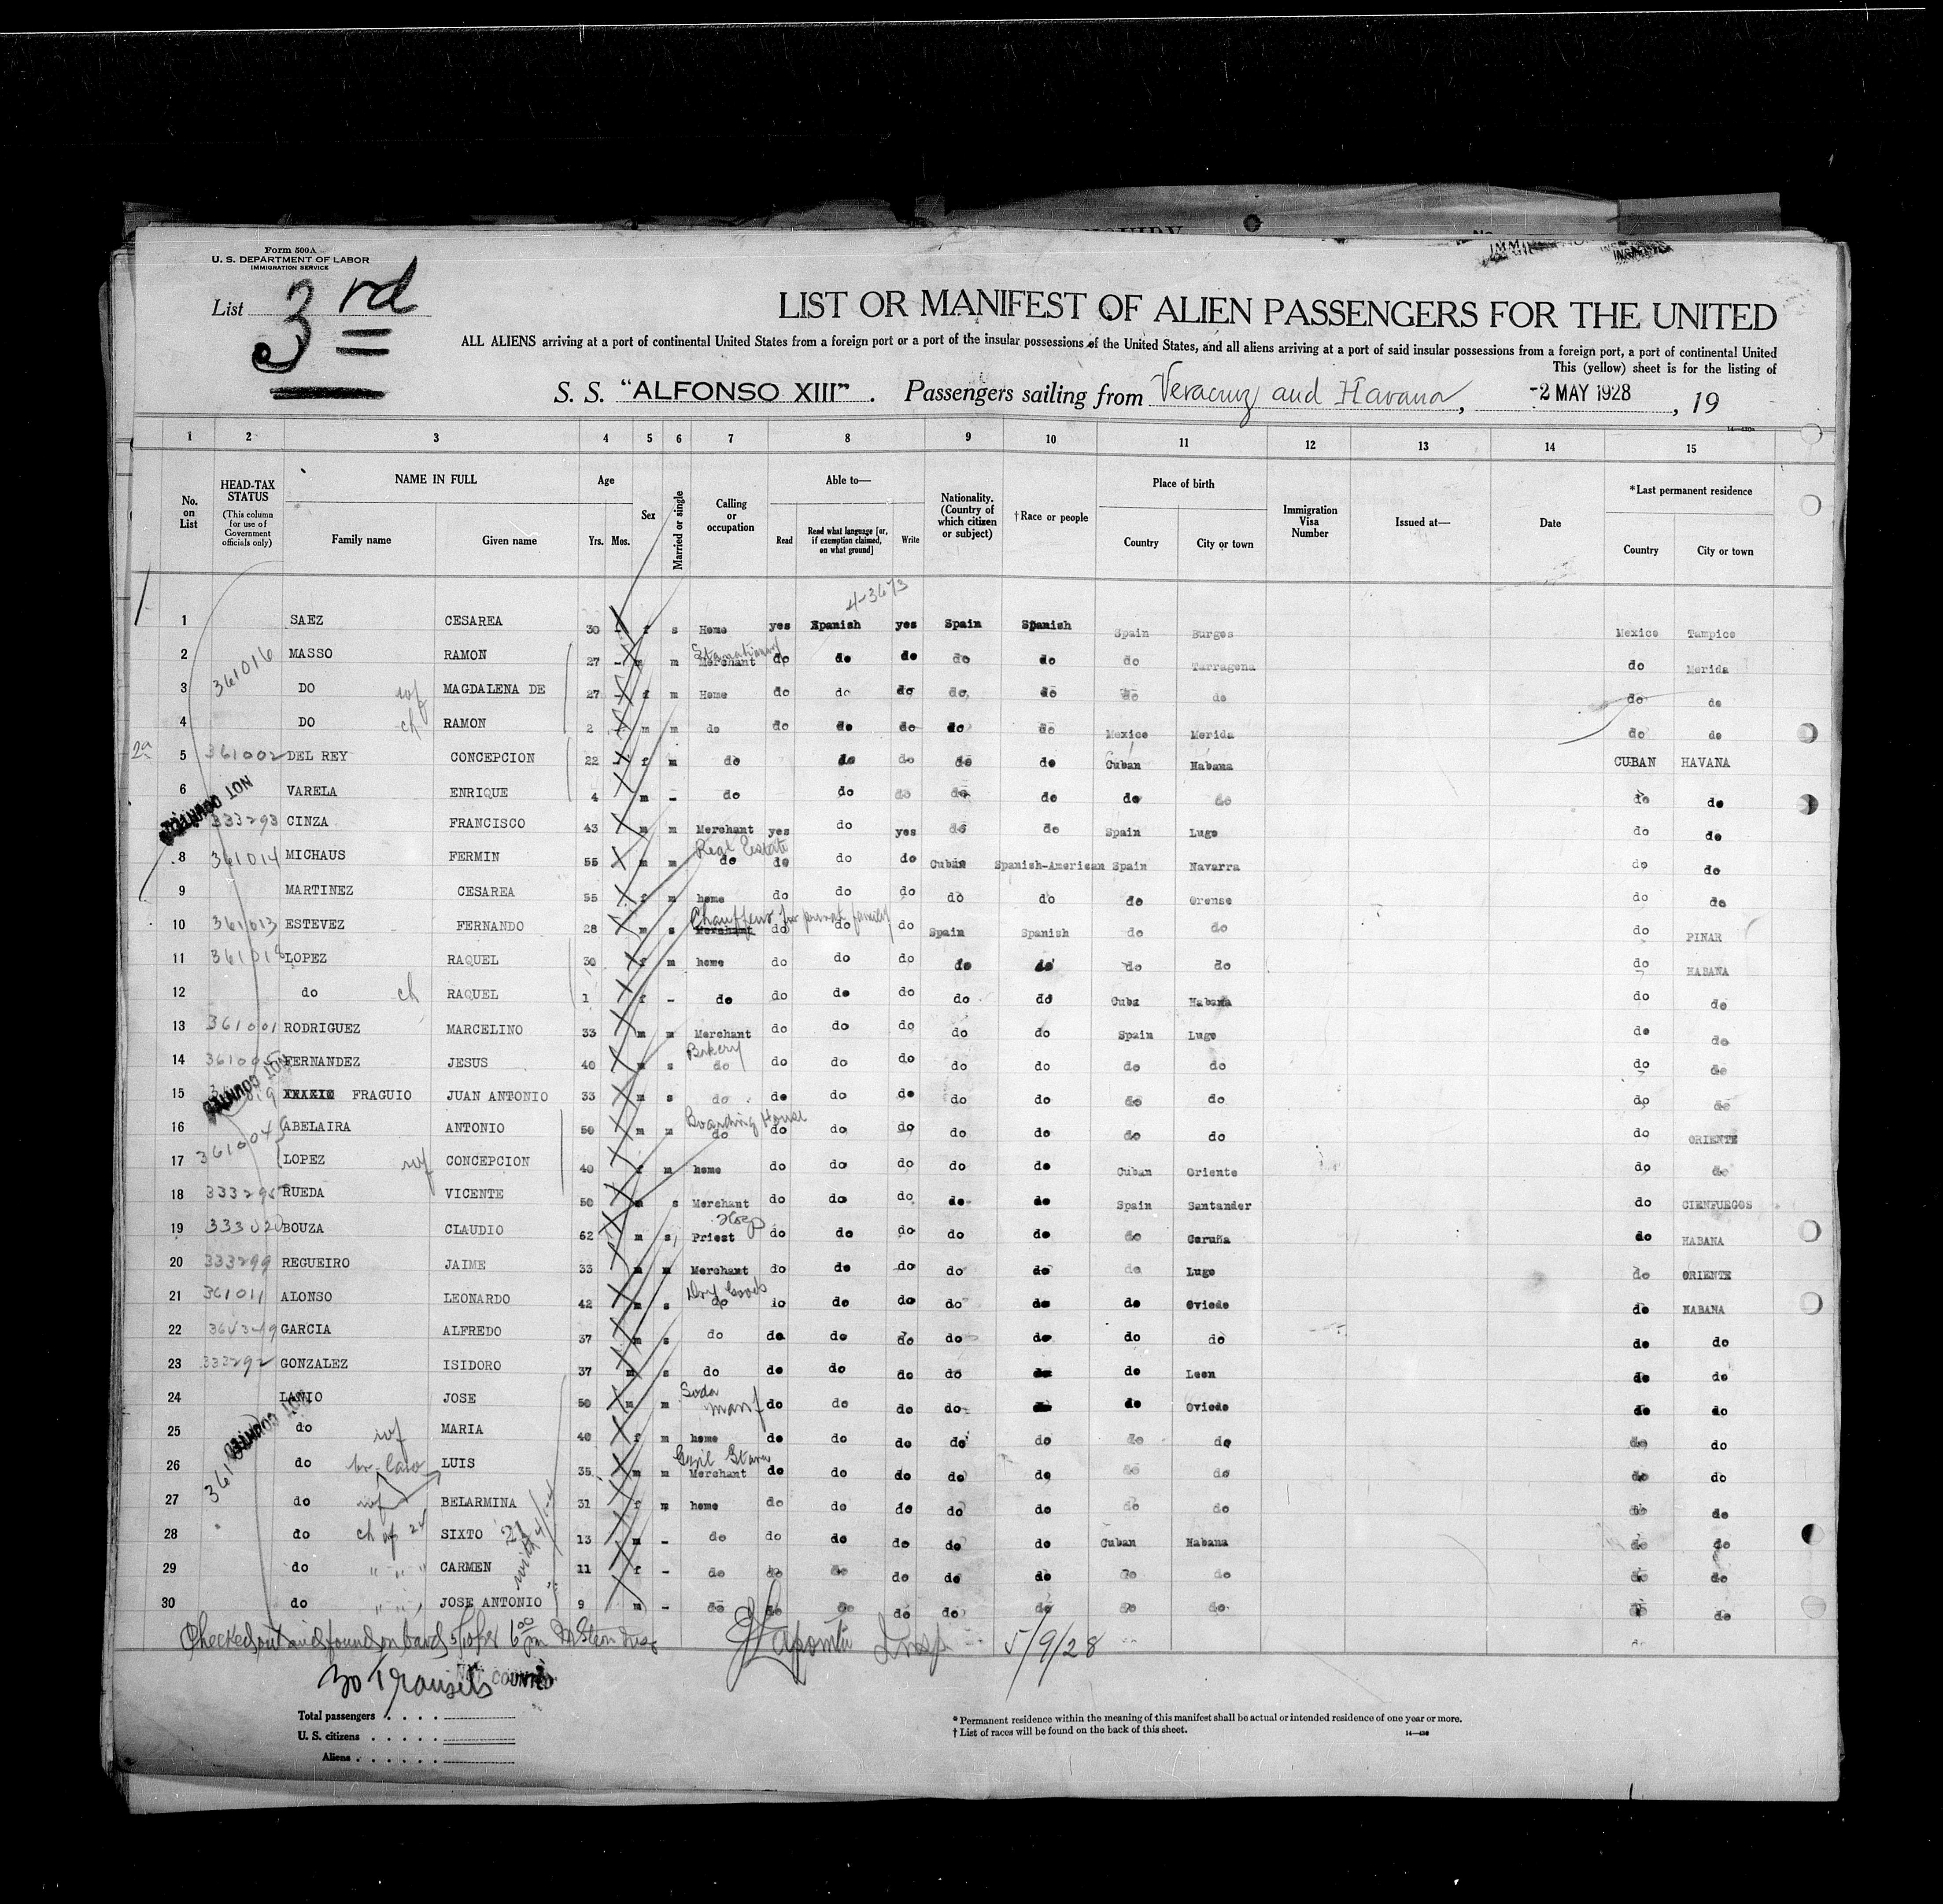 Form 500A
U. S. DEPARTMENT OF LABOR
IMMIGRATION SERVICE
List 3rd
LIST OR MANIFEST OF ALIEN PASSENGERS FOR THE UNITED
ALL ALIENS arriving at a port of continental United States from a foreign port or a port of the insular possessions of the United States, and all aliens arriving at a port of said insular possessions from a foreign port, a port of continental United
This (yellow) sheet is for the listing of
S. S. "ALFONSO XIII". Passengers sailing from Veracruz and Havana, -2 MAY 1928, 19
1 2 3 4 5 6 7 8 9 10 11 12 13 14 15
No. on List
HEAD-TAX STATUS
(This column for use of Government officials only)
NAME IN FULL
Family name Given name
Age
Yrs. Mos.
Sex
Married or single
Calling or occupation
Able to—
Read
Read what language [or, if exemption claimed, on what ground]
Write
Nationality. (Country of which citizen or subject)
†Race or people
Place of birth
Country City or town
Immigration Visa Number
Issued at—
Date
*Last permanent residence
Country City or town
4-3673
1 SAEZ CESAREA 30 - f s Home yes Spanish yes Spain Spanish Spain Burgos Mexico Tampico
2 361016 MASSO RAMON 27 - m m Merchant do do do do do do Tarragona do Merida
3 DO wf MAGDALENA DE 27 - f m Home do do do do do do do do do
4 DO ch RAMON 2 m m do do do do do do Mexico Merida do do
2a 5 361002 DEL REY CONCEPCION 22 - f m do do do do do Cuban Habana CUBAN HAVANA
6 VARELA ENRIQUE 4 m - do do do do do do do do do
NOT COUNTED
333293 CINZA FRANCISCO 43 m m Merchant yes do yes do do Spain Lugo do do
Real Estate
8 361014 MICHAUS FERMIN 55 m m do do do do Cuban Spanish-American Spain Navarra do do
9 MARTINEZ CESAREA 55 f m home do do do do do do Orense do do
Chauffeur for private family
10 361013 ESTEVEZ FERNANDO 28 m s Merchant do do do Spain Spanish do do do PINAR
11 LOPEZ RAQUEL 30 f m home do do do do do do do do HABANA
12 do ch RAQUEL 1 f - do do do do do do Cuba Habana do do
13 361001 RODRIGUEZ MARCELINO 33 m m Merchant do do do do do Spain Lugo do do
Bakery
14 FERNANDEZ JESUS 40 m s do do do do do do do do do do
NOT COUNTED
15 FRAGUIO JUAN ANTONIO 33 m s do do do do do do do do do do
Boarding House
16 361004 ABELAIRA ANTONIO 50 m m do do do do do do do do do ORIENTE
17 LOPEZ wf CONCEPCION 40 f m home do do do do do Cuban Oriente do do
18 RUEDA VICENTE 50 m s Merchant do do do do do Spain Santander do CIENFUEGOS
19 333020 BOUZA CLAUDIO 62 m s Priest do do do do do do Coruña do HABANA
20 333299 REGUEIRO JAIME 33 m m Merchant do do do do do do Lugo do ORIENTE
Dry Goods
21 361011 ALONSO LEONARDO 42 m s do do do do do do do Oviedo do HABANA
22 GARCIA ALFREDO 37 m s do do do do do do do do do do
23 333292 GONZALEZ ISIDORO 37 m s do do do do do do do Leon do do
Soda manf
24 LAVIO JOSE 50 m m do do do do do do Oviedo do do
NOT COUNTED
25 do wf MARIA 40 f m home do do do do do do do do do
26 do LUIS 35 m m Merchant do do do do do do do do do
27 do wf BELARMINA 31 f m home do do do do do do do do do
28 do ch of 24 SIXTO 13 m - do do do do do do Cuban Habana do do
29 do " " " CARMEN 11 f - do do do do do do do do do do
30 do " " " JOSE ANTONIO 9 m - do do do do do do do do do do
Checked out and found on board 6 00 pm Stern Insp 5/9/28
30 Transits NOT COUNTED
Total passengers
U. S. citizens
Aliens
* Permanent residence within the meaning of this manifest shall be actual or intended residence of one year or more.
† List of races will be found on the back of this sheet.